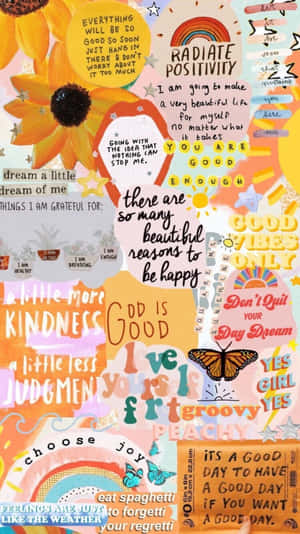 EVERYTHING
WILL BE SO
GOOD SO SOON
JUST HANG IN
THERE & DON'T
WORRY ABOUT
IT TOO MUCH
RADIATE
POSITIVITY
I am going to make
a very beautiful life
for myself
no matter what
it takes
GOING WITH
THE IDEA THAT
NOTHING CAN
STOP ME.
YOU ARE
GOOD
ENOUGH
dream a little
dream of me
THINGS I AM GRATEFUL FOR:
I AM
HEALTHY
I AM
BREATHING
I AM
ENOUGH
there are
so many
beautiful
reasons to
be happy
GOOD
VIBES
ONLY
a little more
KINDNESS
a little less
JUDGMENT
GOD IS
GOOD
Don't Quit
YOUR
Day Dream
love
yourself
first
groovy
PEACHY
YES
GIRL
YES
choose joy
FEELINGS ARE JUST
LIKE THE WEATHER
eat spaghetti
to forgetti
your regretti
ITS A GOOD
DAY TO HAVE
A GOOD DAY
IF YOU WANT
A GOOD DAY.